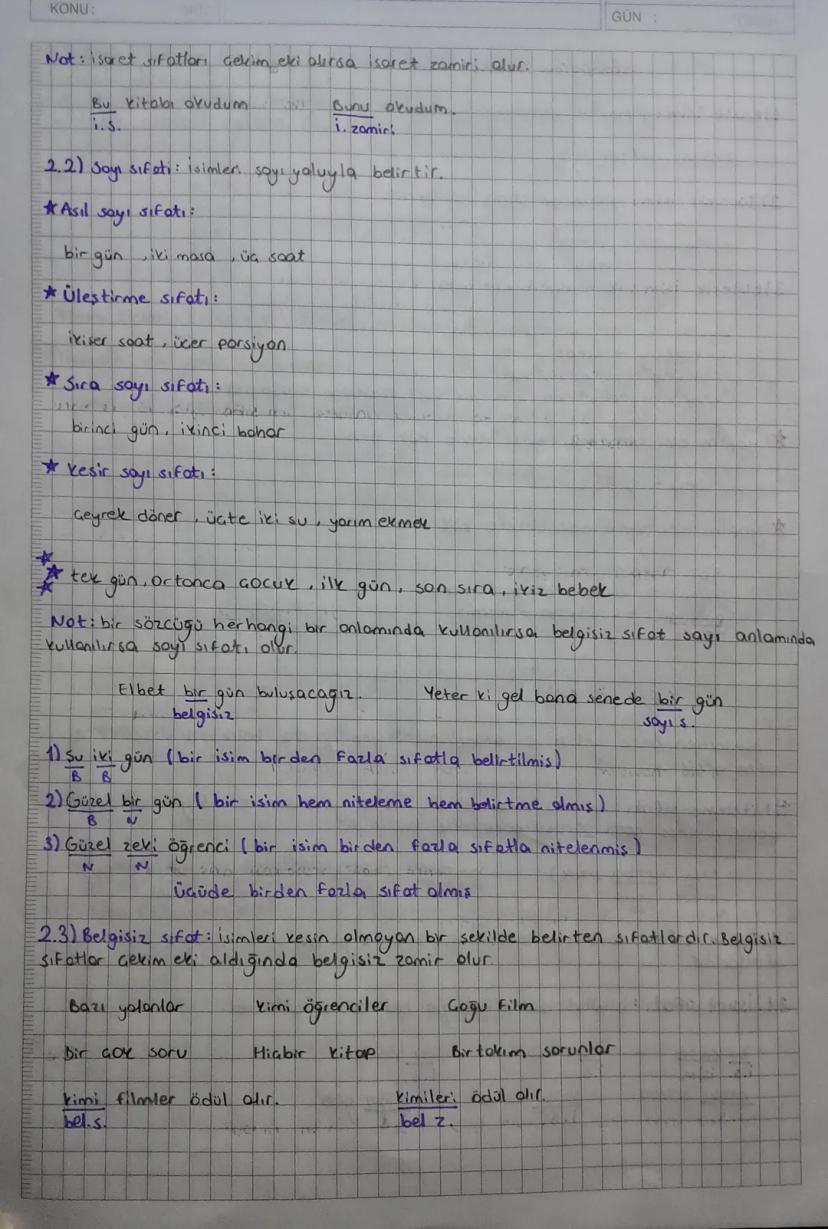 KONU:
GÜN :
Not: işaret sıfatları çekim eki alırsa işaret zamiri olur.
Bu kitabı okudum Bunu okudum.
i.s. i. zamiri
2.2) Sayı sıfatı: isimleri sayı yoluyla belirtir.
★ Asıl sayı sıfatı:
bir gün, iki masa, üç saat
★ Üleştirme sıfatı:
ikişer saat, üçer porsiyon
★ Sıra sayı sıfatı:
birinci gün, ikinci bahar
★ Kesir sayı sıfatı:
Çeyrek döner, üçte iki su, yarım ekmek
★ tek gün, ortanca çocuk, ilk gün, son sıra, ikiz bebek
Not: bir sözcüğü herhangi bir anlamında kullanılırsa belgisiz sıfat sayı anlamında
kullanılırsa sayı sıfatı olur.
Elbet bir gün buluşacağız. Yeter ki gel bana senede bir gün
belgisiz sayı s.
1) Şu iki gün (bir isim birden fazla sıfatla belirtilmiş)
B B
2) Güzel bir gün ( bir isim hem niteleme hem belirtme almış)
B N
3) Güzel zeki öğrenci (bir isim birden fazla sıfatla nitelenmiş)
N N
üçüde birden fazla sıfat almış
2.3) Belgisiz sıfat: isimleri kesin olmayan bir şekilde belirten sıfatlardır. Belgisiz
sıfatlar çekim eki aldığında belgisiz zamir olur
Bazı yalanlar Kimi öğrenciler Çoğu film
Bir çok soru Hiçbir kitap Birtakım sorunlar
Kimi filmler ödül alır. Kimileri ödül alır.
bel.s. bel z.